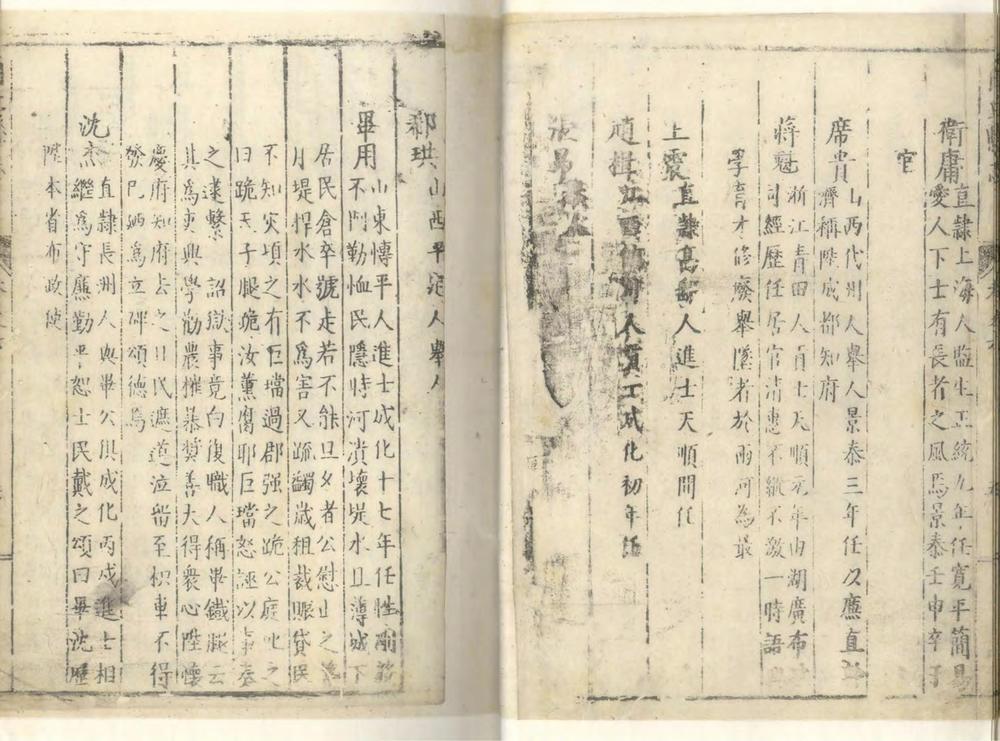 衛庸直隸上海人監生正統九年任寬平簡易
愛人下士有長者之風焉景泰壬申卒于
官
席貴山西代州人舉人景泰三年任以廉直
濟稱陞成都知府
蔣魁浙江青田人貢士天順元年由湖廣布
司經歷任居官清惠不縱不激一時語
學育才修廢舉墜者於兩河為最
上震直隸 人進士天順間任
趙楫江西 人貢士成化初年任
張昂
郗珙山西平定人舉人
畢用山東博平人進士成化十七年任性剛
不鬥勤恤民隱時河潰壞堤水且薄城下
居民倉卒號走若不能旦夕者公慰止之
月堤捍水水不為害又疏蠲歲租裁賑貸民
不知災頃之有巨璫過郡强之跪公庭叱之
曰跪天子腿跪汝薰腐耶巨璫怒誣以事奏
之逮繫 詔獄事竟白復職人稱畢鐵腿云
其為吏興學勸農摧暴獎善大得衆心陞懷
慶府知府去之日民遮道泣留至枳車不得
發 為立碑頌德焉
沈杰直隸長洲人與畢公俱成化丙戌進士相
繼為守廉勤平恕士民戴之頌曰畢沈歷
陞本省布政使